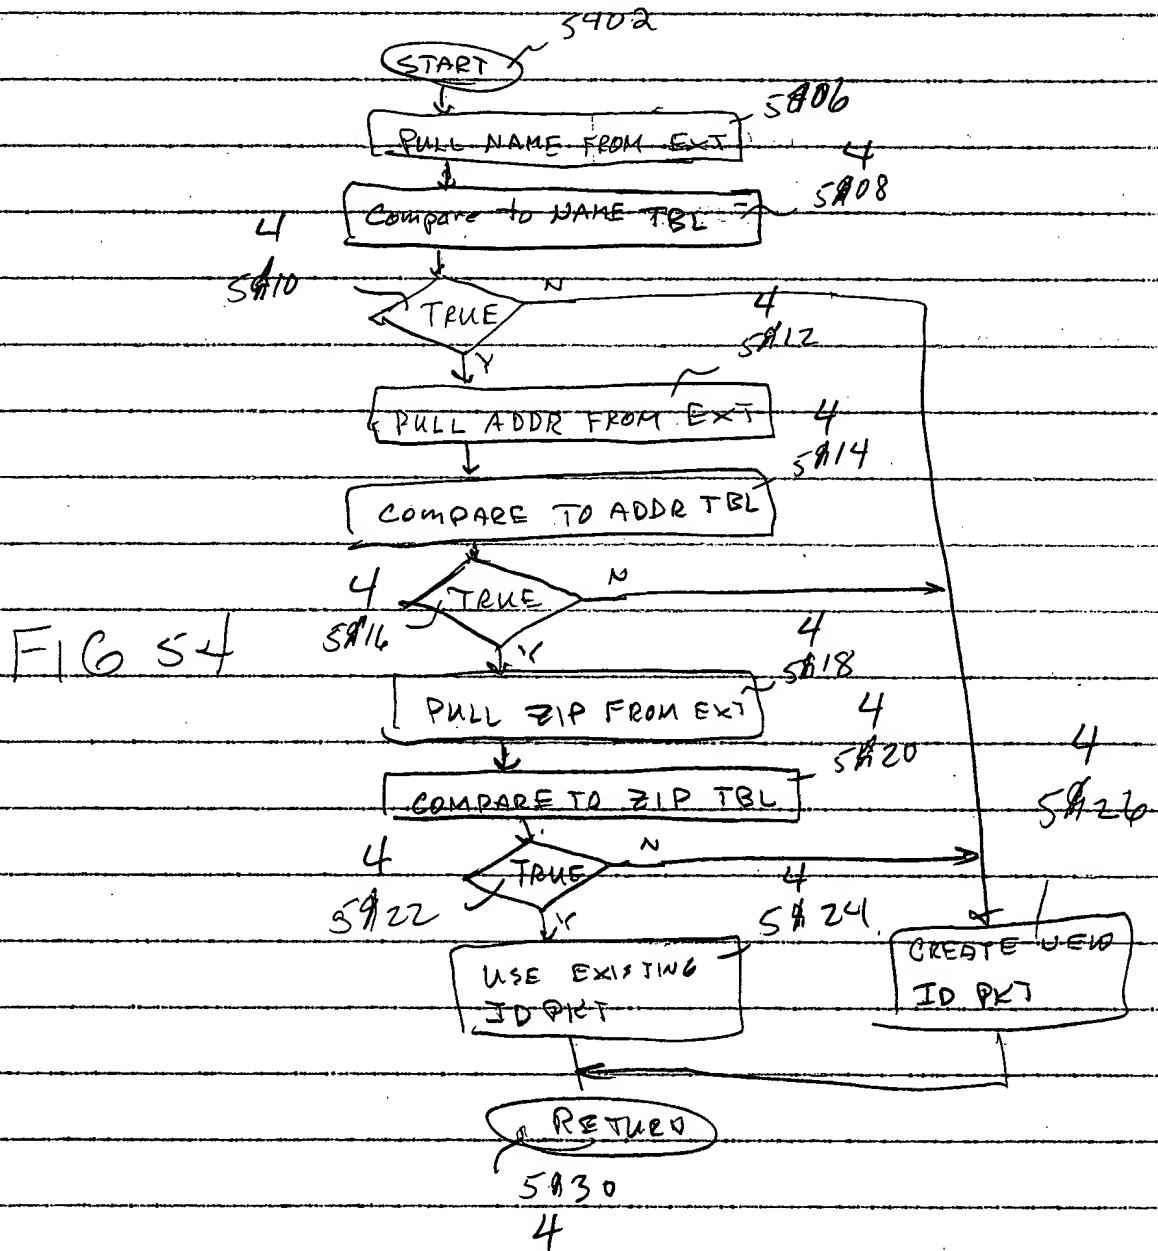 5402
START
5406
PULL NAME FROM EXT
4
5408
Compare to NAME TBL
4
5410
N
TRUE
4
5412
Y
PULL ADDR FROM EXT
4
5414
COMPARE TO ADDR TBL
4
5416
TRUE
N
FIG 54
Y
4
5418
PULL ZIP FROM EXT
4
5420
4
5426
COMPARE TO ZIP TBL
4
5422
TRUE
N
4
5424
Y
USE EXISTING
ID PKT
CREATE NEW
ID PKT
RETURN
5430
4